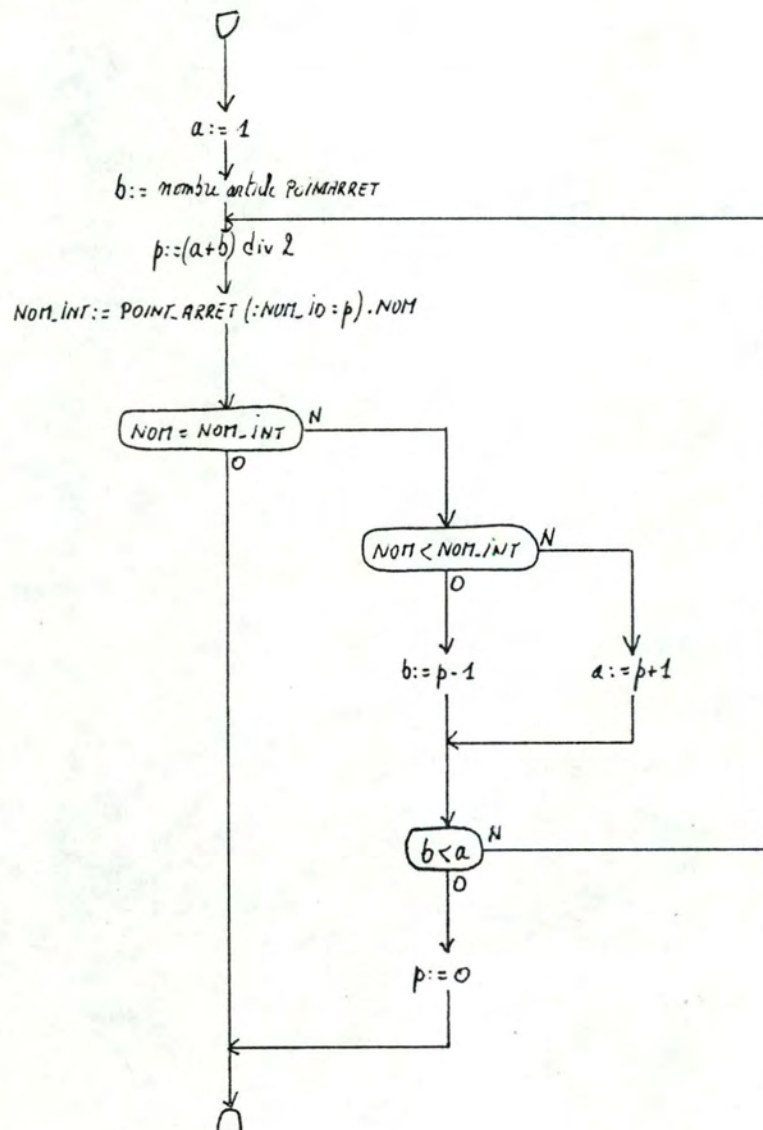 a := 1
b := nombre article POINTARRET
p := (a+b) div 2
NOM_INT := POINT_ARRET (:NUM_ID = p).NOM
NOM = NOM_INT
N
O
NOM < NOM_INT
N
O
b := p-1
a := p+1
b < a
N
O
p := 0